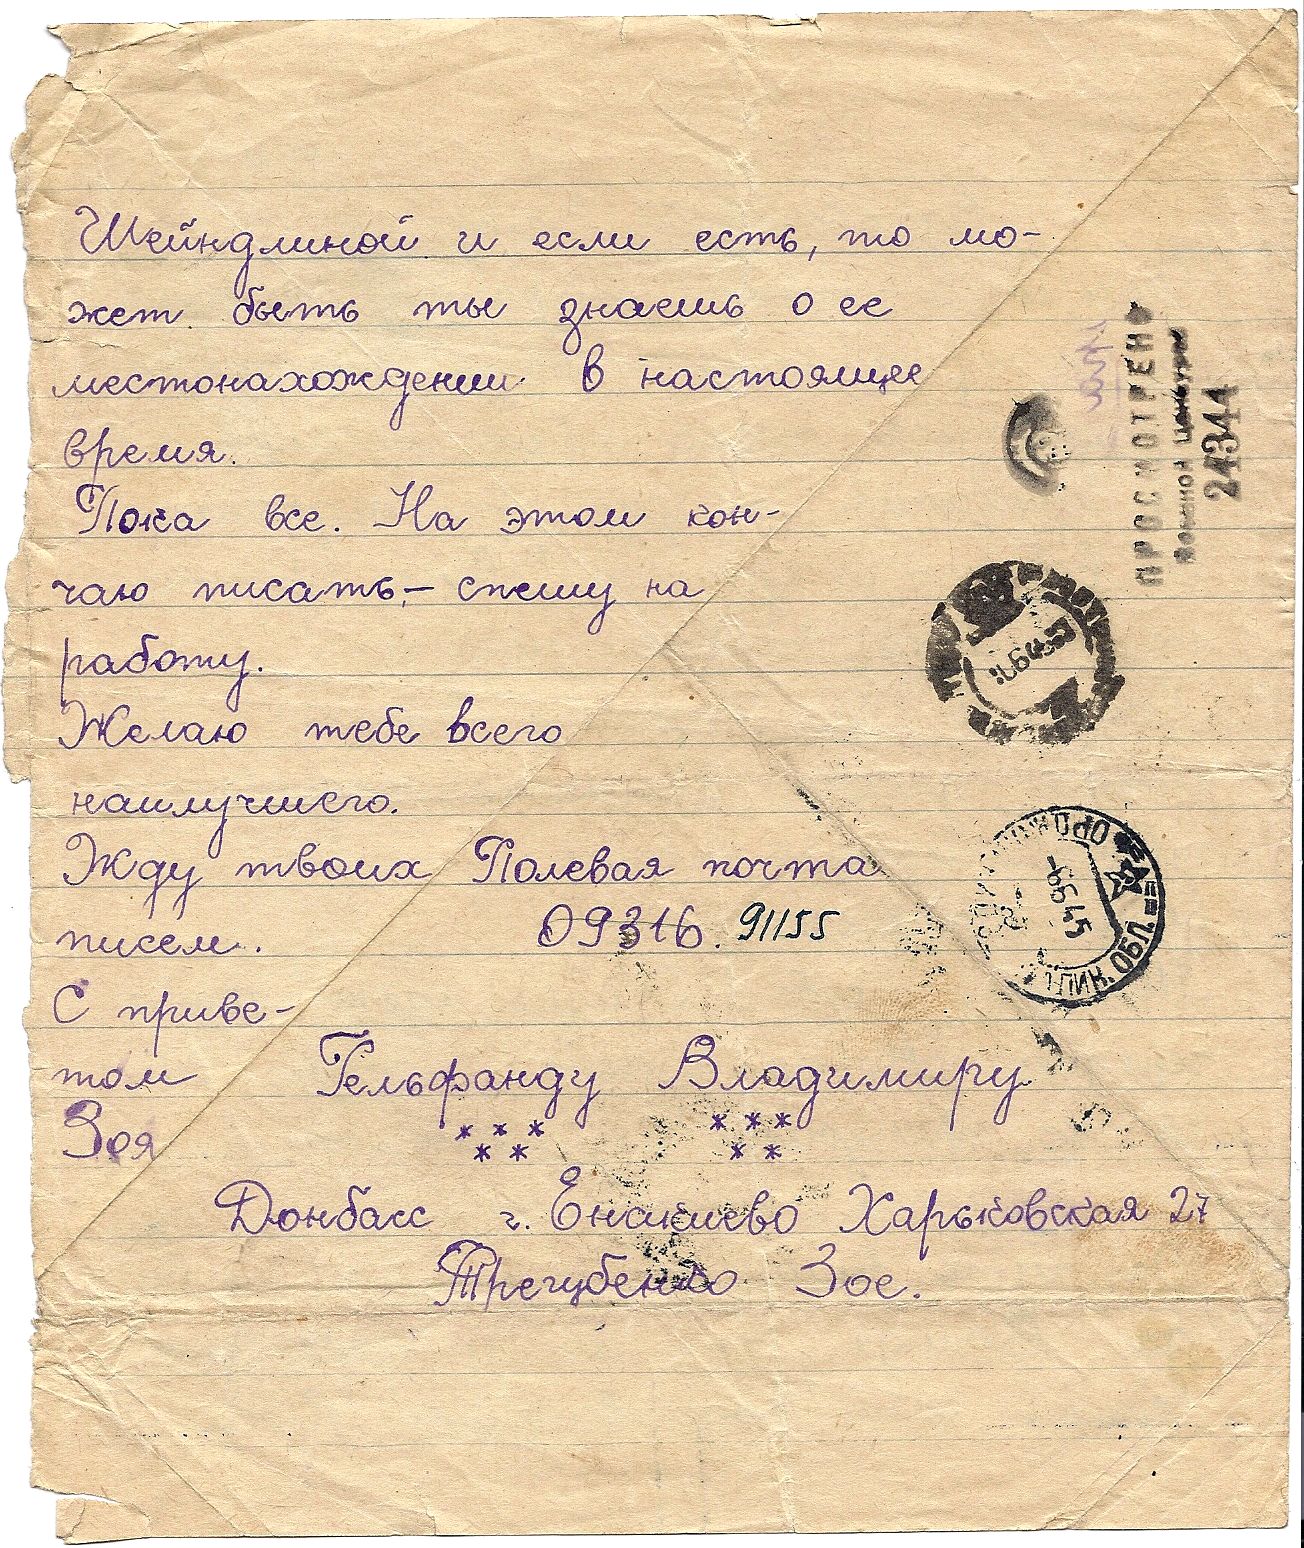 Шейндлиной и если есть, то мо-
жет быть ты знаешь о ее
местонахождении в настоящее
время.
Пока все. На этом кон-
чаю писать,– спешу на
работу.
Желаю тебе всего
наилучшего.
Жду твоих
писем.
С приве-
том
Зоя
Полевая почта
09316. 91155
Гельфанду Владимиру
* * * * * *
* * * *
Донбасс г. Енакиево Харьковская 27
Трегубенко Зое.
ПРОСМОТРЕНО
Военной Цензурой
24344
ОРДЖОНИКИДЗЕ
-6 6 45
ОБЛ.